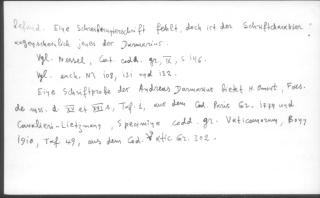 Befund. Eine Schreiberunterschrift fehlt, doch ist der Schriftcharakter
augenscheinlich jener des Darmarius.
Vgl. Mercati, Cat. codd. gr., II, S. 146.
Vgl. auch M 108, 131 und 132.
Eine Schriftprobe des Andreas Darmarius bietet H. Omont, Facs.
de mss. d. XV et XVI s, Taf. 1, aus dem Cod. Paris Gr. 1879 und
Cavalieri-Lietzmann, Specimina codd. gr. Vaticanorum, Bonn
1910, Taf. 49, aus dem Cod. Vatic Gr. 302.